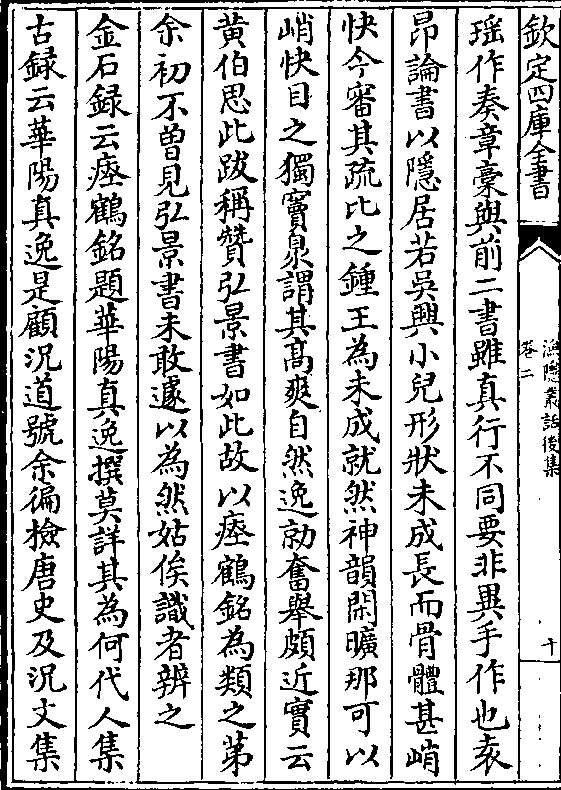 欽定四庫全書
漁隱叢話後集
卷二
十
瑶作奏章稾與前二書雖真行不同要非異手作也袁
昂論書以隱居若吳興小兒形狀未成長而骨體甚峭
快今審其疏比之鍾王為未成就然神韻閑曠那可以
峭快目之獨竇泉謂其髙爽自然逸勍奮舉頗近實云
黄伯思此跋稱贊弘景書如此故以瘞鶴銘為類之苐
余初不曽見弘景書未敢遽以為然姑俟識者辨之
金石録云瘞鶴銘題華陽真逸撰莫詳其為何代人集
古録云華陽真逸是顧況道號余徧檢唐史及況文集